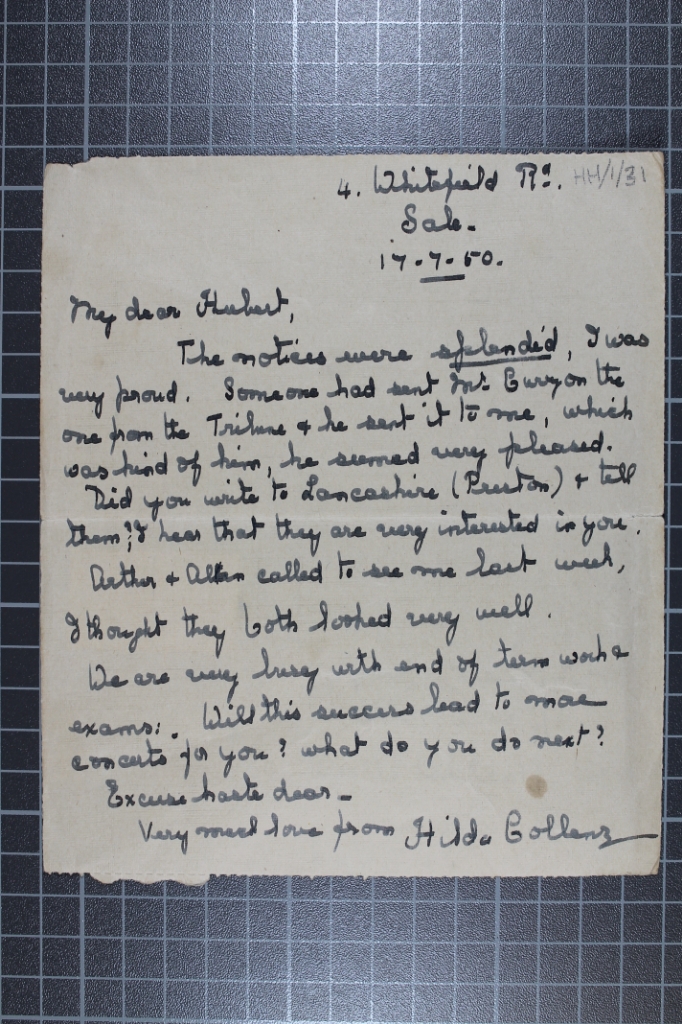 4. Whitefield Rd. HH/1/31
Sale.
17-7-50.
My dear Hubert,
The notices were splendid, I was
very proud. Someone had sent Mr. Curzon the
one from the Tribune & he sent it to me, which
was kind of him, he seemed very pleased.
Did you write to Lancashire (Preston) & tell
them? I hear that they are very interested in you.
Arthur & Allan called to see me last week,
I thought they both looked very well.
We are very busy with end of term work &
exams:. Will this success lead to more
concerts for you? what do you do next?
Excuse haste dear -
Very much love from Hilda Collens